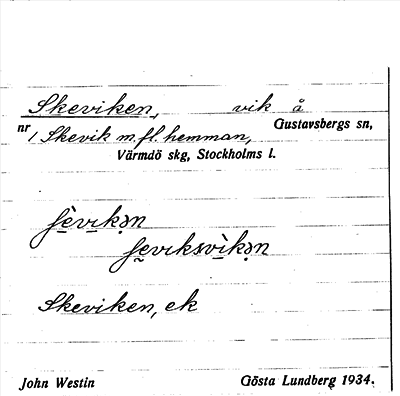 Skeviken, vik å
Gustavsbergs sn,
nr 1 Skevik m.fl. hemman,
Värmdö skg, Stockholms l.
ʃèvikən
ʃeviksvìkən
Skeviken, ek
John Westin Gösta Lundberg 1934.